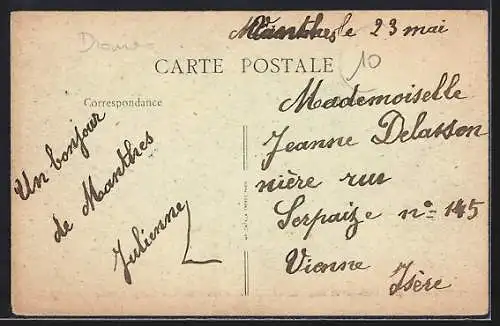 Drome
Manthes, le 23 mai
10
CARTE POSTALE
Correspondance
Un bonjour
de Manthes
Julienne
Mademoiselle
Jeanne Delasson
nière rue
Serpaize n° 145
Vienne
Isère